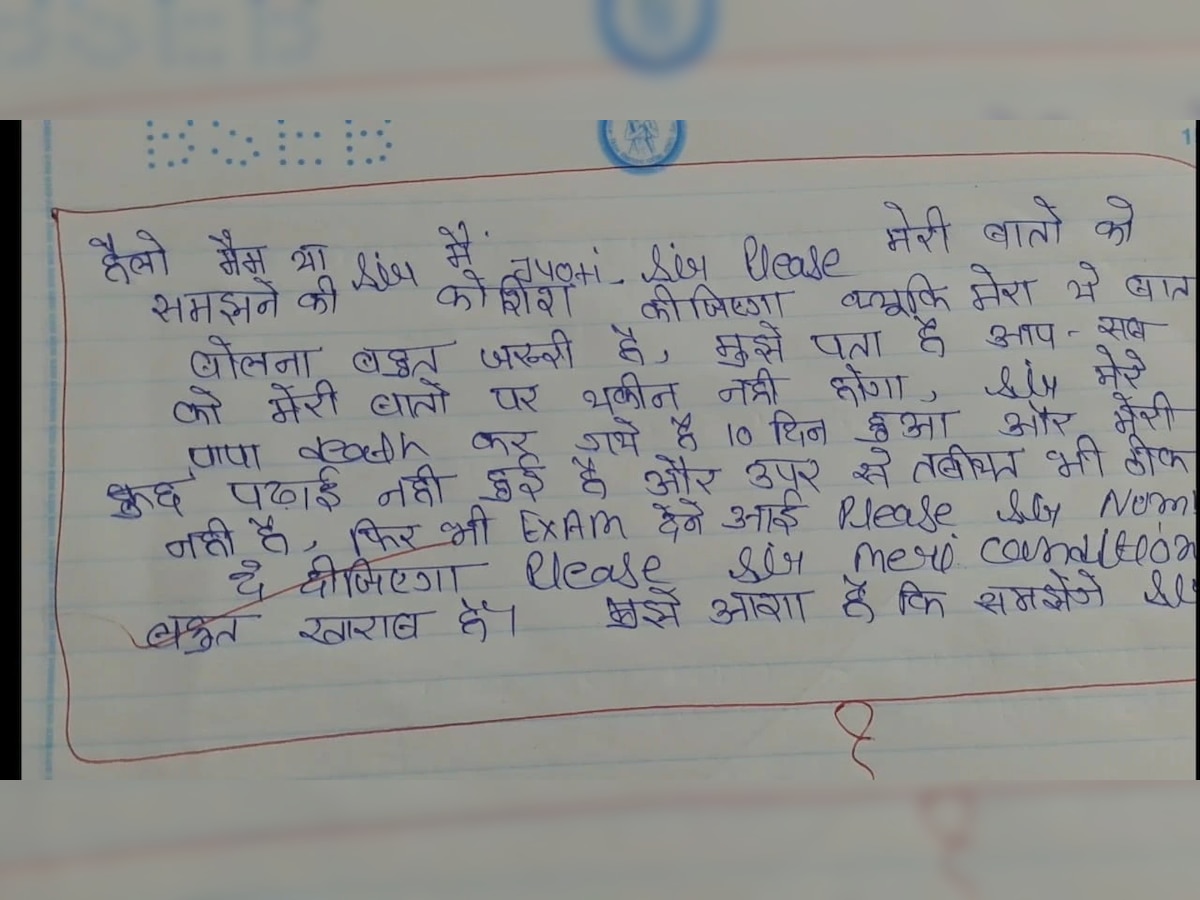 BSEB
BSEB
1
हैलो मैम या sir मैं Jyoti. Sir Please मेरी बातो को
समझने की कोशिश कीजिएगा क्यूकि मेरा ये बात
बोलना बहुत जरूरी है, मुझे पता है आप-सब
को मेरी बातों पर यकीन नही होगा, sir मेरे
पापा death कर गये है 10 दिन हुआ और मेरी
कुछ पढाई नही हुई है और उपर से तबीयत भी ठीक
नही है, फिर भी EXAM देने आई Please sir Num
दे दीजिएगा Please sir meri condition
बहुत खराब है। मुझे आशा है कि समझेगे